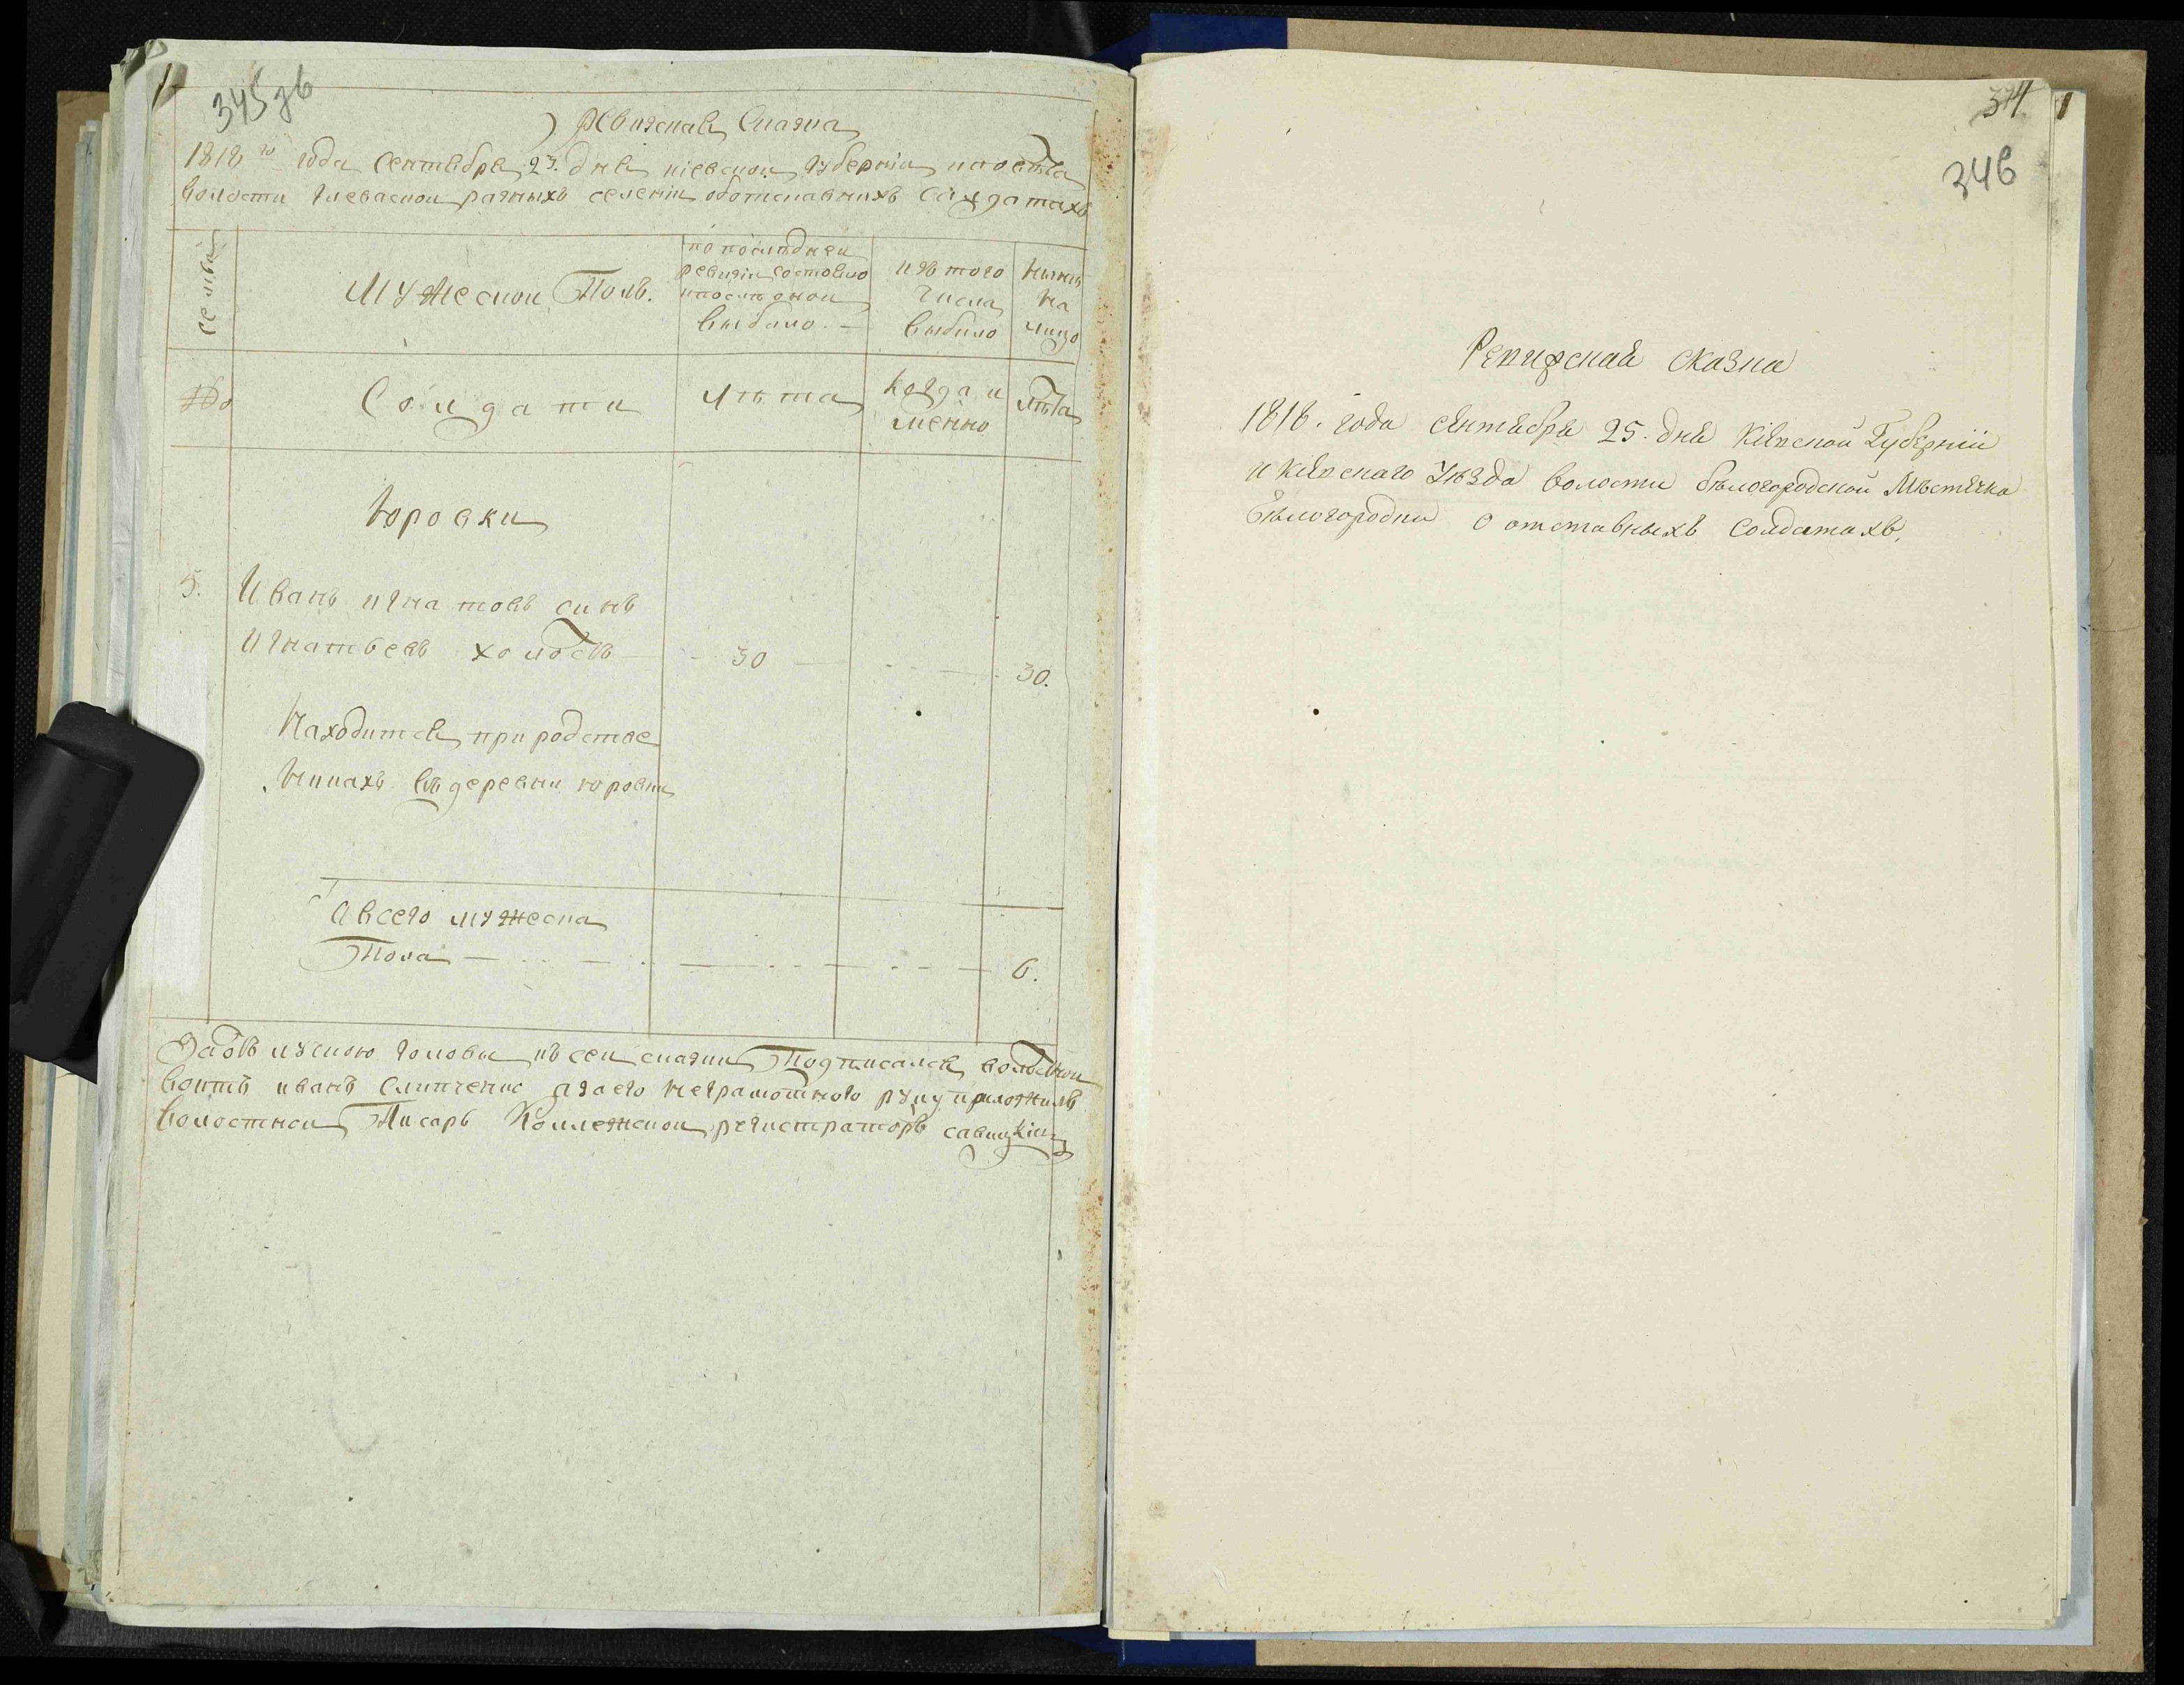 345зв
Ревизская Сказка
1818го года сентября 23. дня киевской губернии и повѣта
волости Глеваской разныхъ селении оботставнихъ салдатахъ
семьи
Мужеской Полъ.
по последней ревизіи состояло и после оной выбило.
изъ того числа выбило
нынѣ на лицо
№
Солдати
лѣта
когда именно
лѣта
Юровки
5. Иванъ игнатовъ синъ
Игнатьевъ холостъ — 30 — 30.
Находится при родстве
нникахъ въ деревни юровки
А всего мужеска
Пола — 6.
волостной
войтъ иванъ Слипченко а за его неграмотного руку приложилъ
волостной Писарь Коллежской регистраторъ савицкій
374
346
Ревизская сказка
1818. года сентября 25. дня Кіевской Губерніи
и кіевскаго Уѣзда волости бѣлогородской Мѣстечка
Бѣлогородки о отставныхъ солдатахъ.